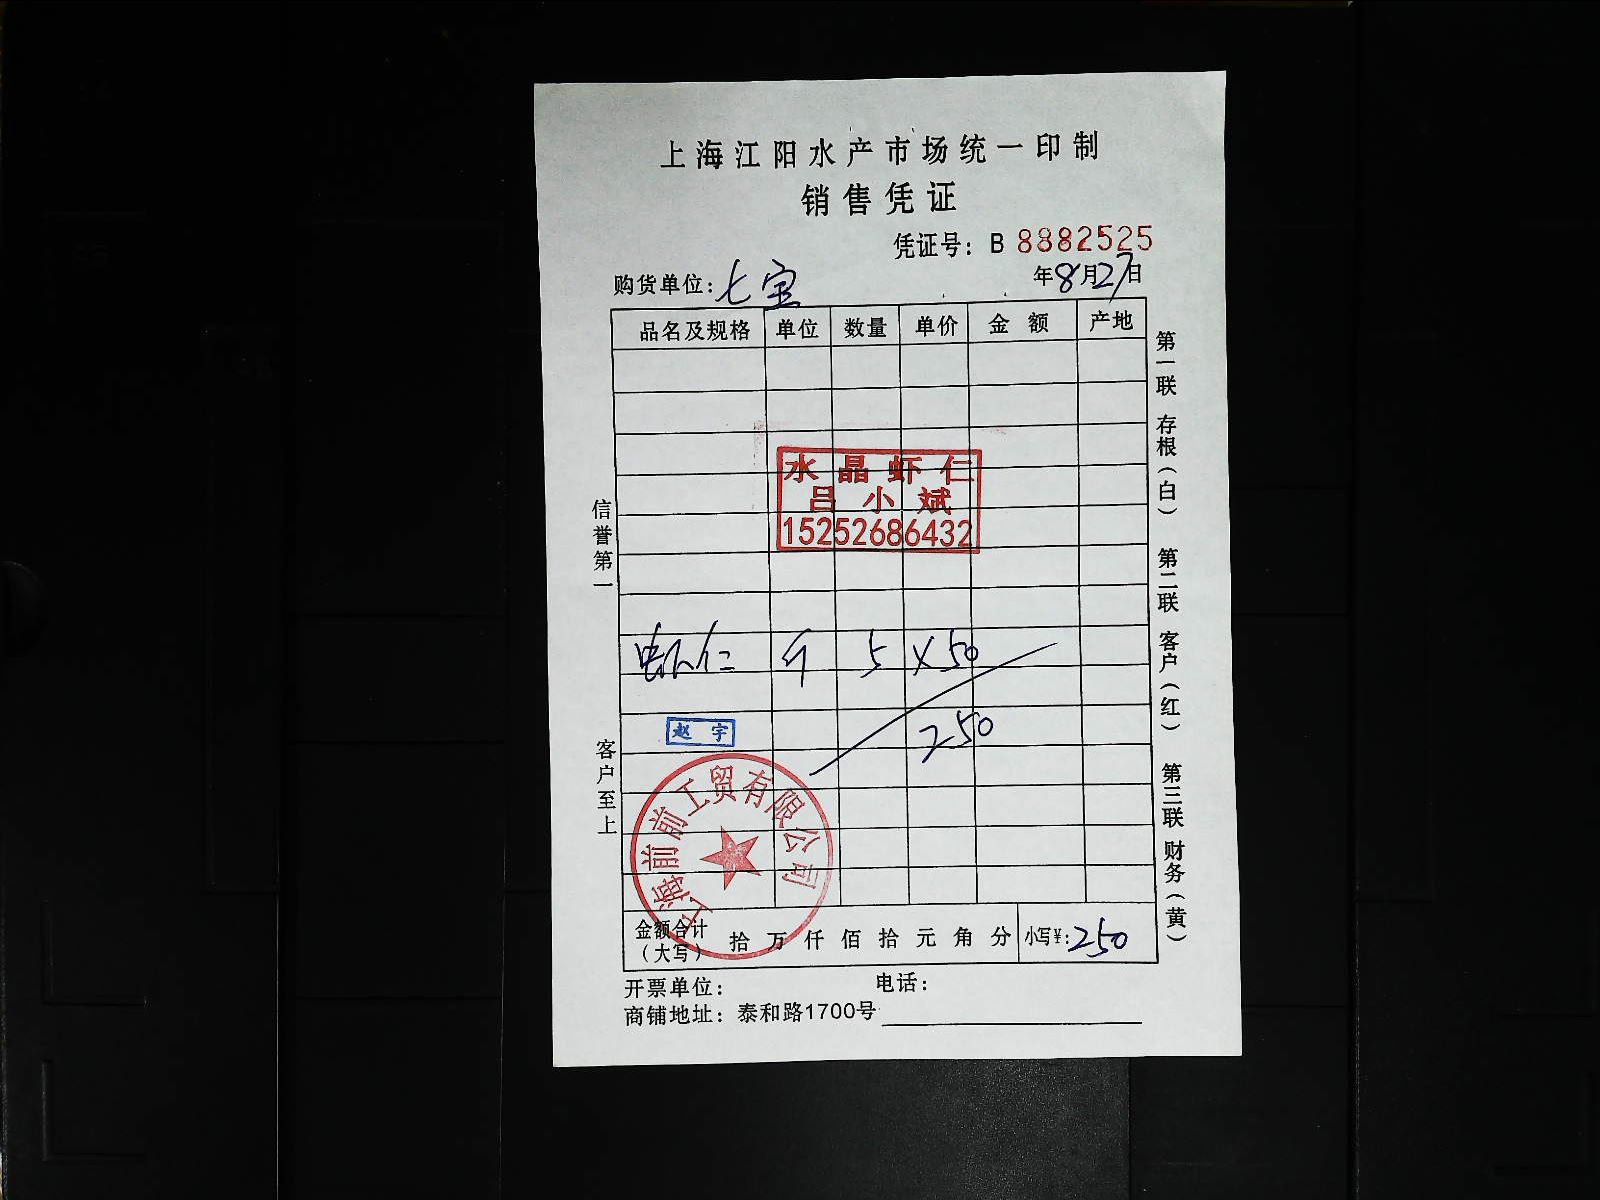 上海江阳水产市场统一印制
销售凭证
凭证号：B 8882525
购货单位：七宝 年8月27日
品名及规格 单位 数量 单价 金额 产地
水晶虾仁
吕小斌
15252686432
虾仁 斤 5 X50
250
赵宇
上海前前工贸有限公司
金额合计（大写） 拾万仟佰拾元角分 小写¥：250
开票单位： 电话：
商铺地址：泰和路1700号
信誉第一 客户至上
第一联 存根（白） 第二联 客户（红） 第三联 财务（黄）